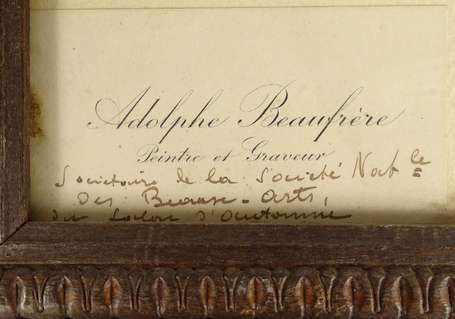 Adolphe Beaufrère
Peintre et Graveur
Societaire de la Société Nat le
des Beaux-Arts,
du Salon d'Automne